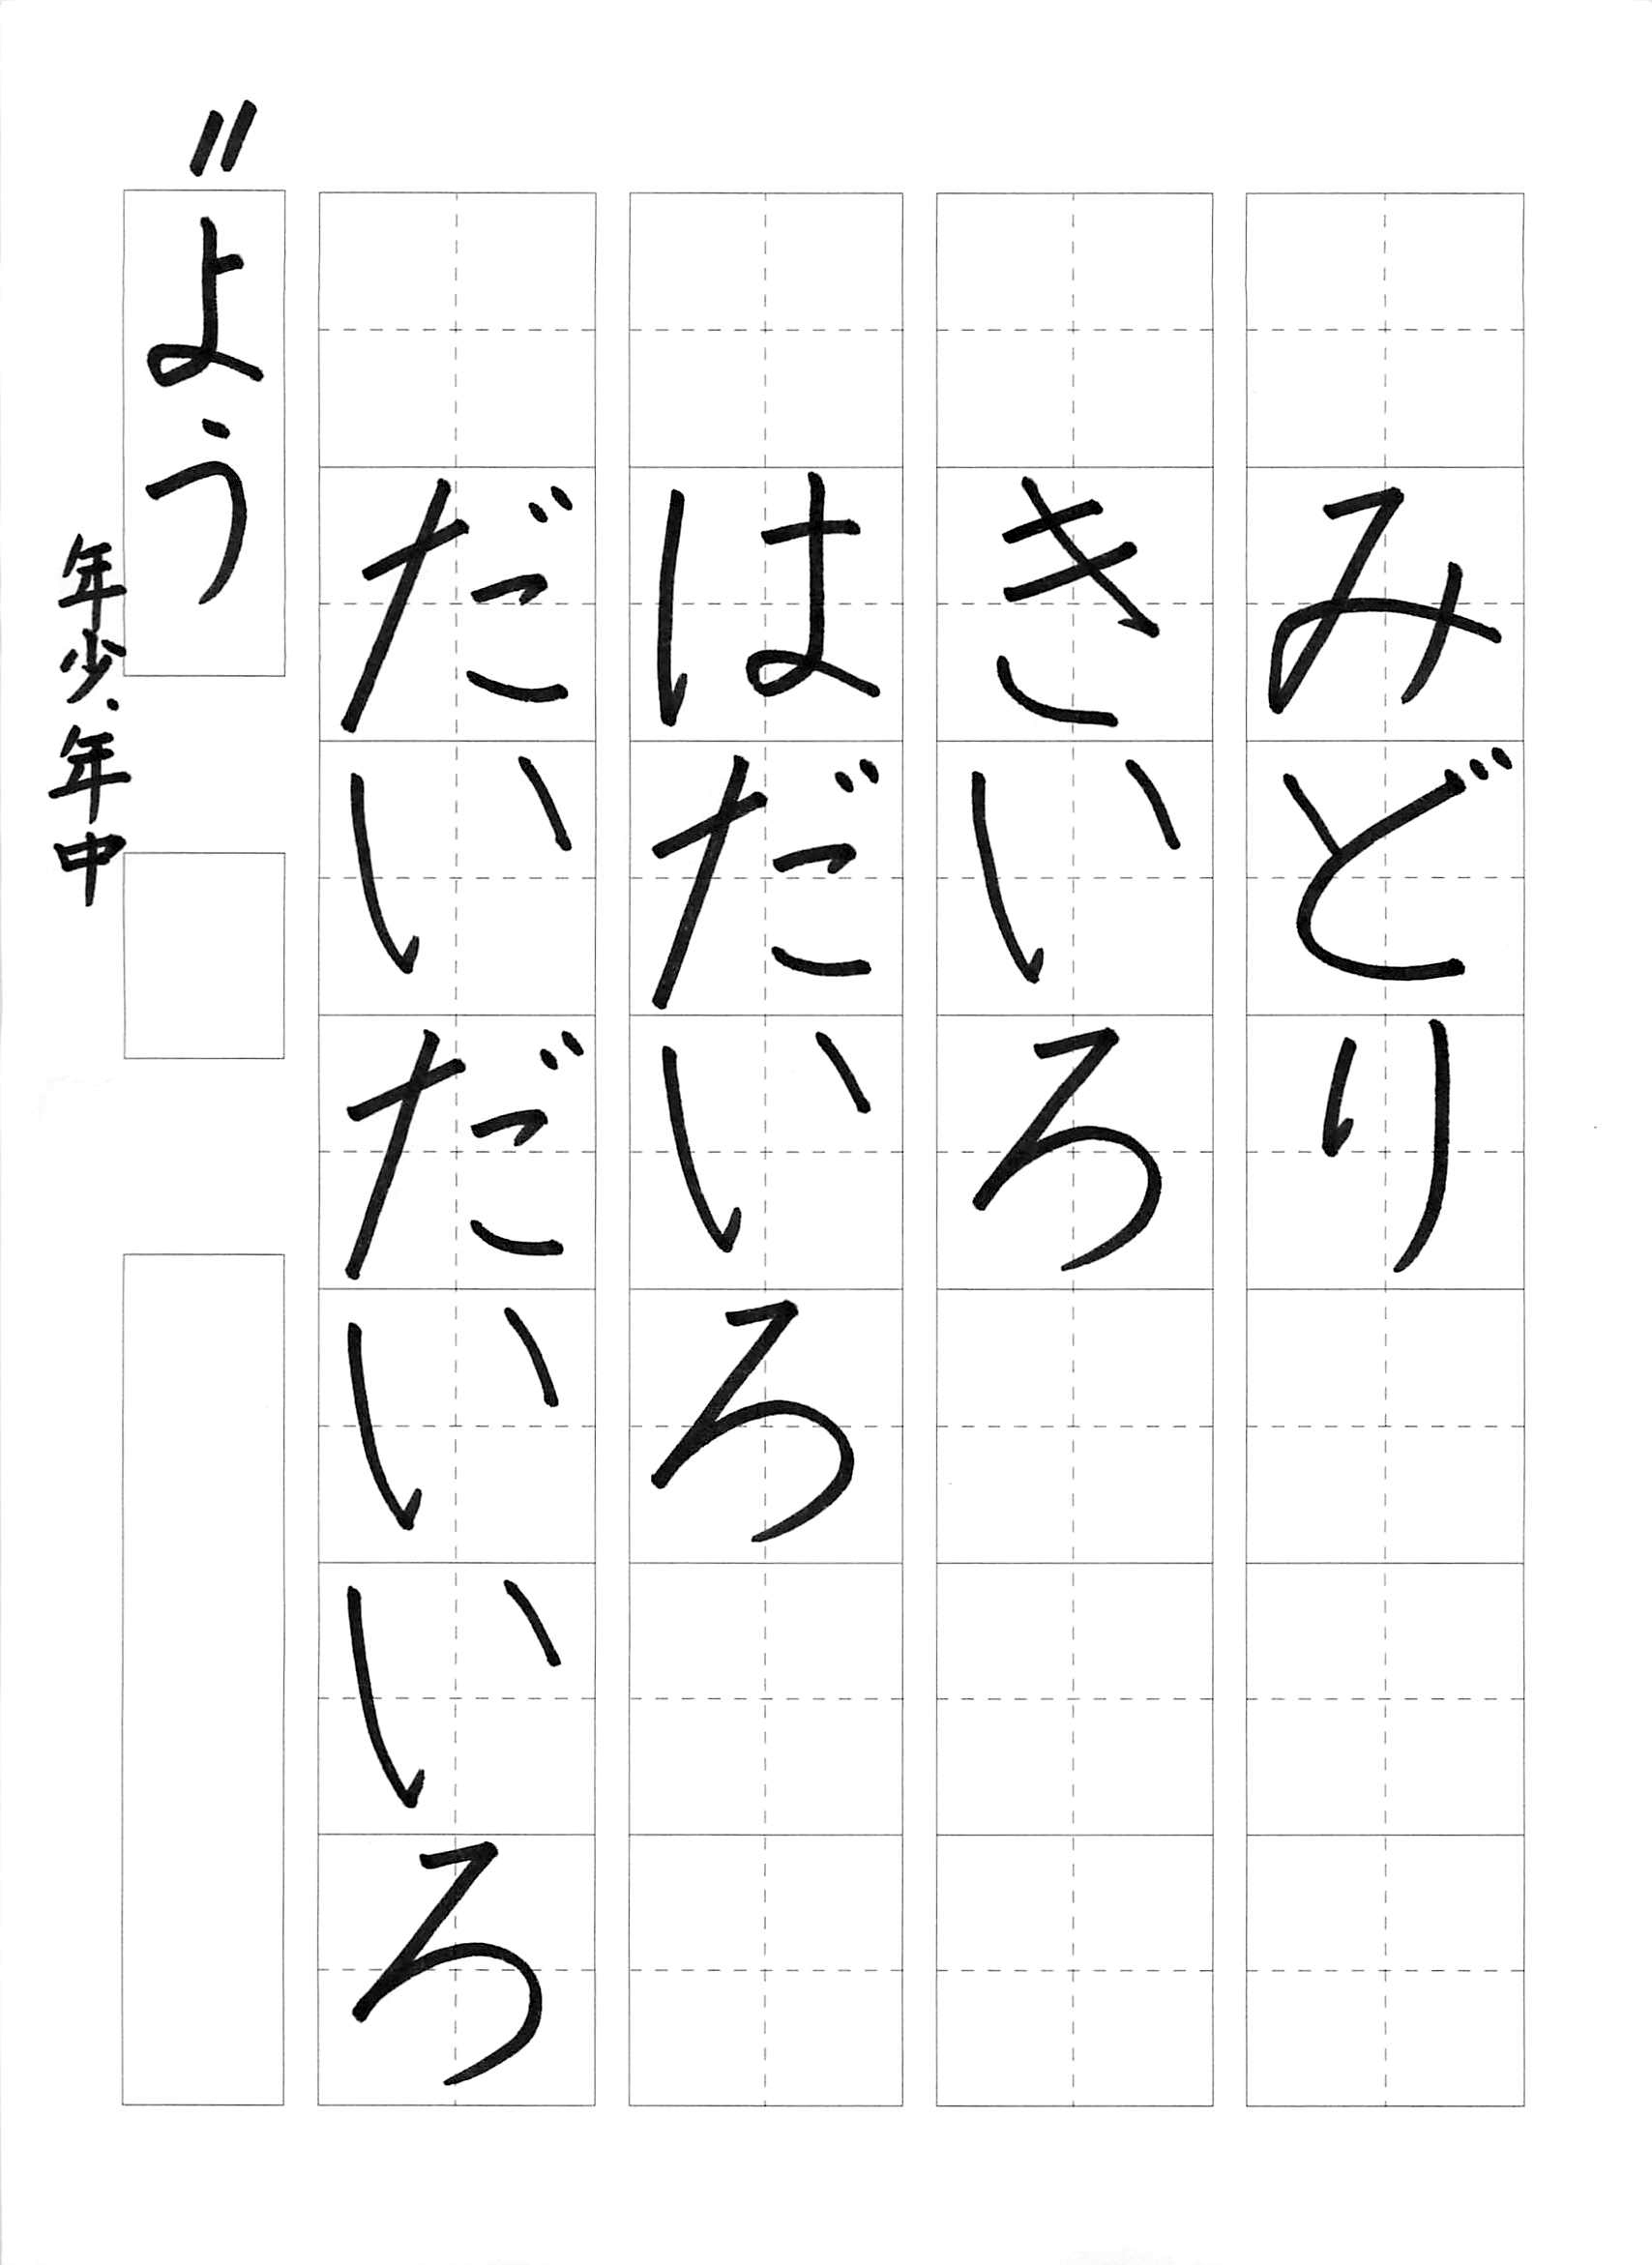 みどり
きいろ
はだいろ
だいだいいろ
11
よう
年少・年中